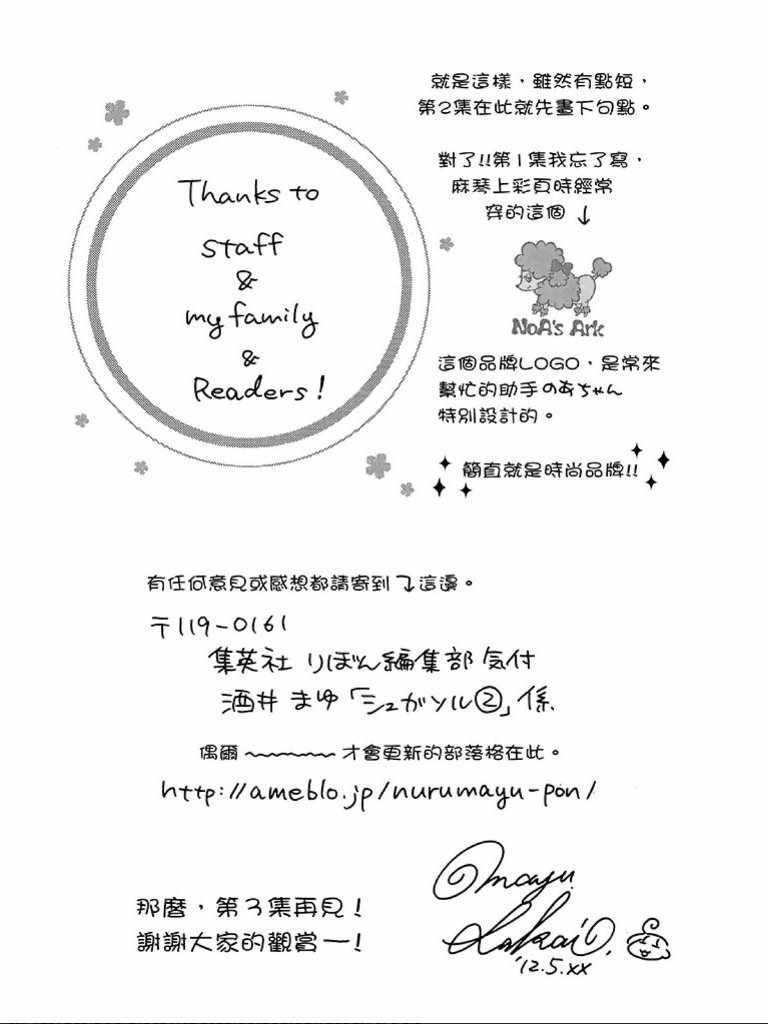 就是這樣，雖然有點短，
第2集在此就先畫下句點。
對了!!第1集我忘了寫，
麻琴上彩頁時經常
穿的這個↓
NoA's Ark
這個品牌LOGO，是常來
幫忙的助手のあちゃん
特別設計的。
簡直就是時尚品牌!!
Thanks to
staff
&
my family
&
Readers!
有任何意見或感想都請寄到↴這邊。
〒119-0161
集英社 りぼん編集部 気付
酒井 まゆ「シュガソル②」係
偶爾～～～～～才會更新的部落格在此。
http://ameblo.jp/nurumayu-pon/
那麼，第3集再見!
謝謝大家的觀賞—!
mayu
Sakai.
'12.5.XX